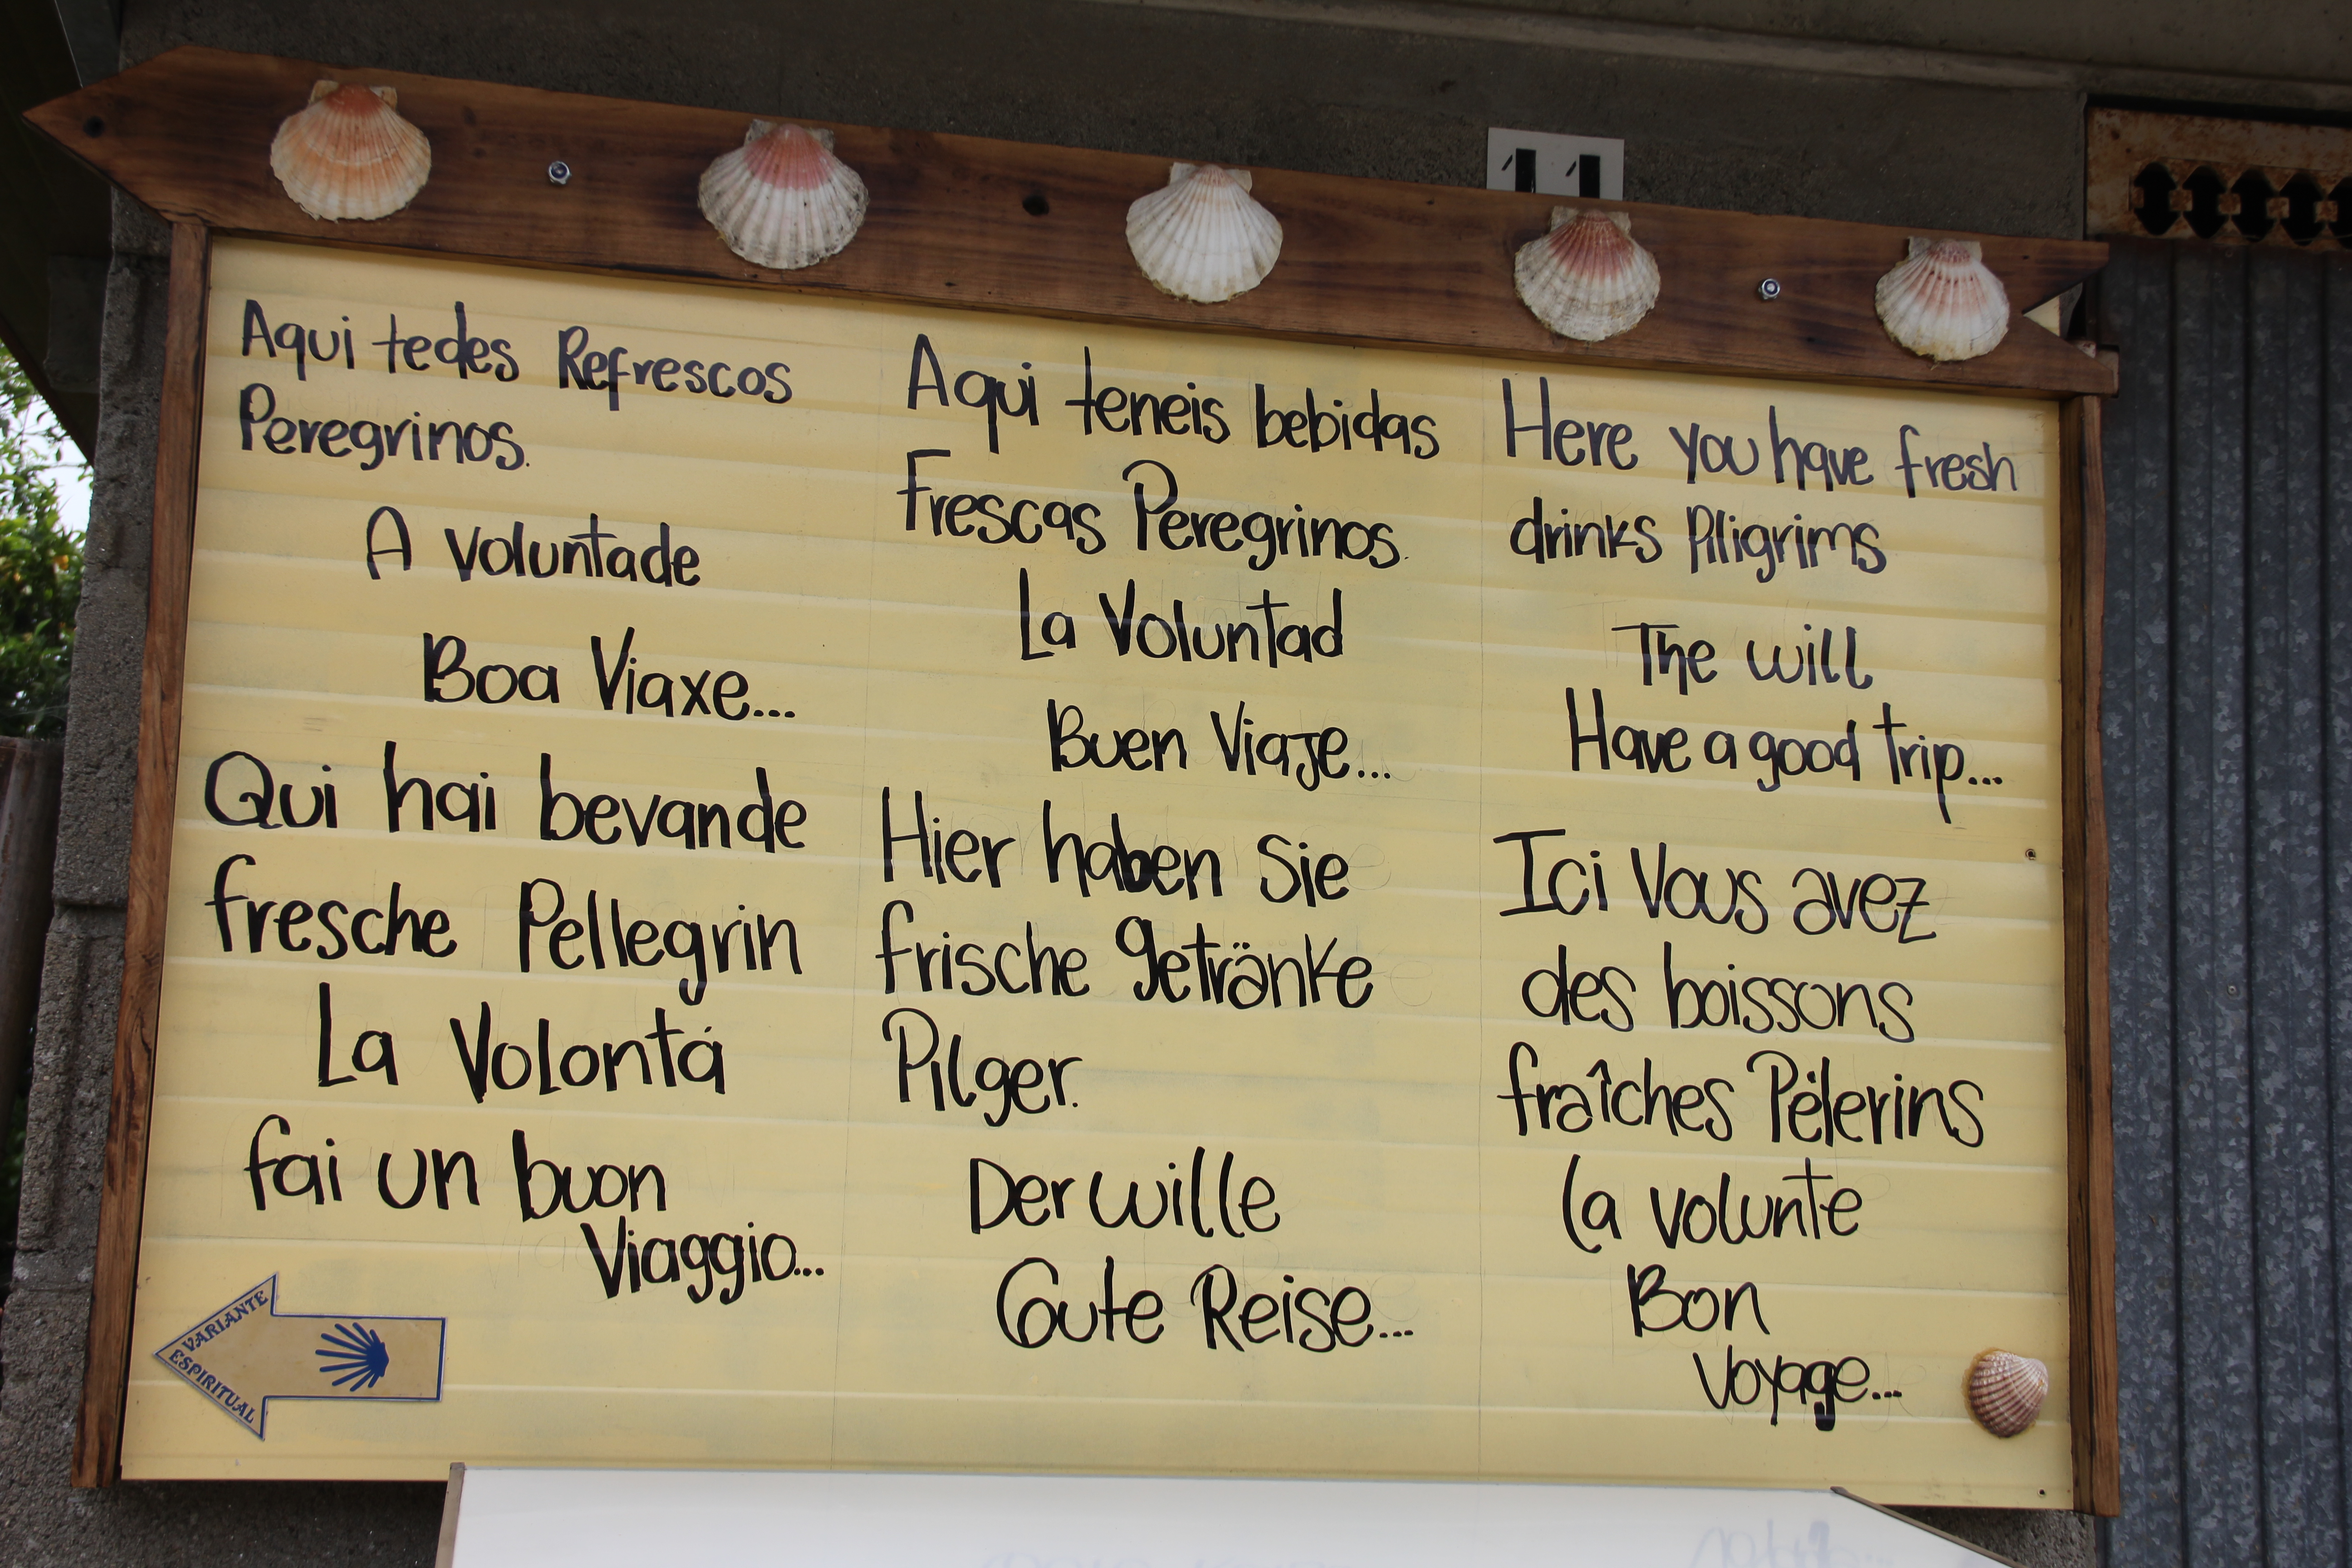 11
Aqui tedes Refrescos
Peregrinos.
A voluntade
Boa Viaxe...
Aqui teneis bebidas
Frescas Peregrinos.
La Voluntad
Buen Viaje...
Here you have fresh
drinks Piligrims
The will
Have a good trip...
Qui hai bevande
fresche Pellegrin
La Volontá
fai un buon
Viaggio...
Hier haben Sie
frische getränke
Pilger.
Der wille
Gute Reise...
Ici Vous avez
des boissons
fraîches Pélerins
La volunte
Bon
Voyage...
VARIANTE
ESPIRITUAL